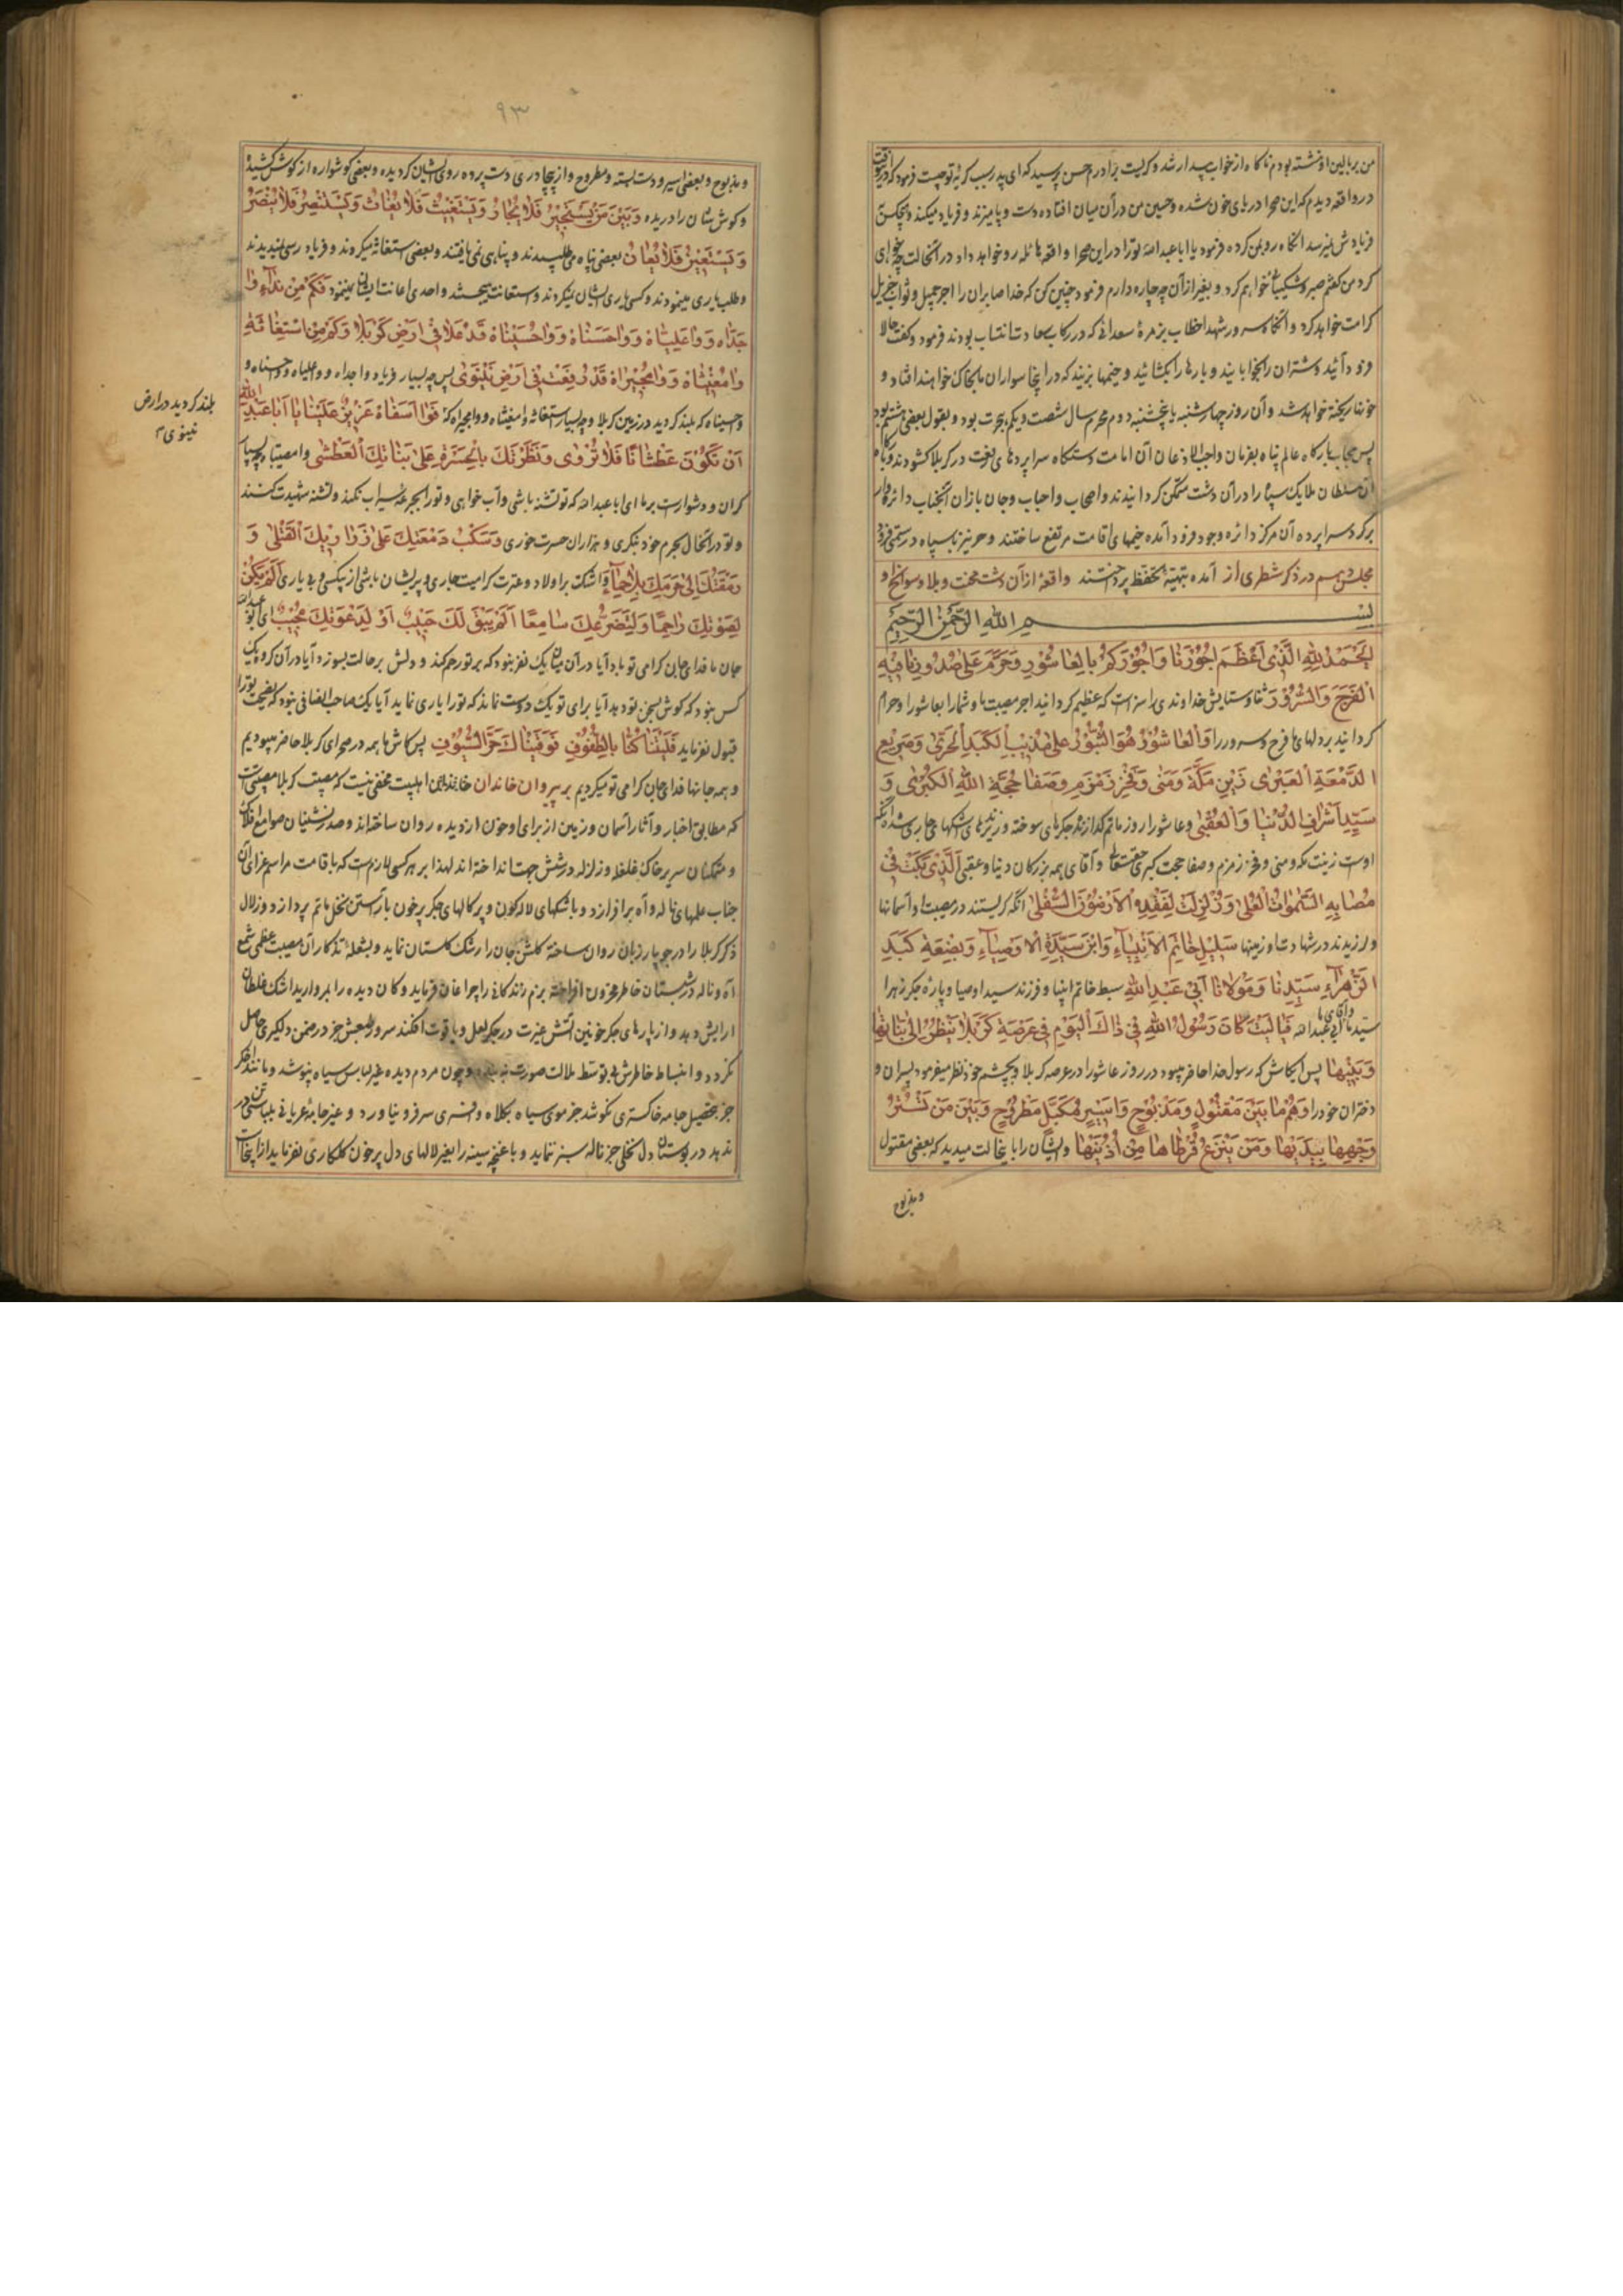 من بر بالین او نشسته بودم ناگاه از خواب بیدار شد و گریست برادرم حسن پرسید که ای پدر سبب گریه تو چیست فرمود که درین وقت
در واقعه دیدم که این صحرا دریای خون شده و حسین من در آن میان افتاده دست و پا میزند و فریاد میکند و هیچکس
فریادش نمیرسد آنگاه رو بمن کرده فرمود یا ابا عبدالله تو را در این صحرا واقعه هائله رو خواهد داد در آنحالت چه خواهی
کرد من گفتم صبر و شکیبائی خواهم کرد و بغیر از آن چه چاره دارم فرمود چنین کن که خدا صابران را اجر جمیل و ثواب جزیل
کرامت خواهد کرد و آنگاه سرور شهدا خطاب بزمره سعدائی که در رکاب سعادت انتساب بودند فرمود و گفت حالا
فرود آئید و شتران را بخوابانید و بارها را بگشائید و خیمها بزنید که در اینجا سواران ما بخاک خواهند افتاد و
خونها ریخته خواهد شد و آن روز چهارشنبه یا پنجشنبه دوم محرم سال شصت و یکم هجرت بود و بقول بعضی هشتم بود
پس حجاب بارگاه عالم پناه بفرمان واجب الاذعان آن امامت دستگاه سراپردهای رفعت در کربلا گشودند و بارگاه
آن سلطان ملایک سپاه را در آن دشت متمکن گردانیدند و اصحاب و احباب و جان بازان آنجناب دائره وار
بر گرد سراپرده آن مرکز دائره وجود فرود آمده خیمهای اقامت مرتفع ساختند و حر نیز با سپاه در سمتی فرود
مجلس دهم در ذکر شطری از آمده بتهیئه تحفظ پرداختند واقعه از آن دشت محنت و بلا و سوانح او
بسم الله الرحمن الرحیم
اَلْحَمْدُ لِلّهِ الَّذی اَعْظَمَ اُجُورَنا وَ اُجُورَکُمْ بِالْعاشُورِ وَ حَرَّمَ عَلی صُدُورِنا فیهِ
الْفَرَحَ وَ السُّرُورَ ثنا و ستایش خداوندی را سزاست که عظیم گردانید اجر مصیبت ما و شما را بعاشورا و حرام
گردانید بر دلهای ما فرح و سرور را وَ الْعاشُورُ هُوَ الثُّبُورُ عَلی مُذیبِ الْکَبَدِ الْحَرّی وَ صَریعِ
الدَّمْعَةِ الْعَبْری زَیْنِ مَکَّةَ وَ مِنی وَ فَخْرِ زَمْزَمِ وَ صَفا حُجَّةِ اللهِ الْکُبْری وَ
سَیِّدِ اَشْرافِ الدُّنْیا وَ الْعُقْبی و عاشورا روز ماتم گدازنده جگرهای سوخته و ریزنده اشکهای جاری شده آنکه
اوست زینت مکه و منی و فخر زمزم و صفا حجت کبری حقتعالی و آقای همه بزرگان دنیا و عقبی اَلَّذی بَکَتْ فی
مُصابِهِ السَّمواتُ الْعُلی وَ زُلْزِلَتْ لِفَقْدِهِ الْاَرَضُونَ السُّفْلی آنکه گریستند در مصیبت او آسمانها
و لرزیدند در شهادت او زمینها سَلیلِ خاتَمِ الْاَنْبِیآءِ وَ ابْنِ سَیِّدِ الْاَوْصِیآءِ وَ بَضْعَةِ کَبَدِ
الزَّهْرآءِ سَیِّدِنا وَ مَوْلانا اَبی عَبْدِ اللهِ سبط خاتم انبیا و فرزند سید اوصیا و پاره جگر زهرا
سید ما و آقای ما ابی عبدالله فَیالَیْتَ کانَ رَسُولُ اللهِ فی ذالکَ الْیَوْمِ فی عَرْصَةِ کَرْبَلا یَنْظُرُ اِلی بَناتِها
وَ بَنیها پس ایکاش که رسول خدا حاضر میبود در روز عاشورا در عرصه کربلا و بچشم خود نظر میفرمود پسران و
دختران خود را وَ هُمْ ما بَیْنَ مَقْتُولٍ وَ مَذْبُوحٍ وَ اَسیرٍ مُکَبَّلٍ مَطْرُوحٍ وَ بَیْنَ مَنْ تَسْتُرُ
وَجْهَها بِیَدَیْها وَ مَنْ یَنْزِعُ قُرْطاها مِنْ اُذُنَیْها و ایشان را باینحالت میدید که بعضی مقتول
و مذبوح
۹۳
و مذبوح و بعضی اسیر و دست بسته و مطروح و از بیچادری دست پرده روی ایشان گردیده و بعضی گوشواره از گوش کشیده
و گوش شان را دریده وَ بَیْنَ مَنْ یَسْتَجیرُ فَلا یُجارُ وَ یَسْتَغیثُ فَلا یُغاثُ وَ یَسْتَنْصِرُ فَلا یُنْصَرُ
وَ یَسْتَعینُ فَلا یُعانُ بعضی پناه می طلبیدند و پناهی نمی یافتند و بعضی استغاثه میکردند و فریاد رسی نمیدیدند
و طلب یاری مینمودند و کسی یاری ایشان نمیکردند و استعانت میجستند و احدی اعانت ایشان نمینمود فَکَمْ مِنْ نِدآءِ وا
جَدّاه وَ وا عَلِیّاهْ وَ وا حَسَناهْ وَ وا حُسَیْناهْ قَدْ عَلا فی اَرْضِ کَرْبَلا وَ کَمْ مِنِ اسْتِغاثَةِ
وا مُغیثاهْ وَ وا مُجیراهْ قَدْ رُفِعَتْ فی اَرْضِ نَیْنَوی پس چه بسیار فریاد وا جداه و وا علیاه و حسناه و
و حسیناه که بلند گردید در زمین کربلا و چه بسیار استغاثه وا مغیثاه و وا مجیراه که فَوا اَسَفاهْ عَزیزٌ عَلَیْنا یا اَبا عَبْدِ اللهِ
بلند گردید در ارض
نینوی
اَنْ تَکُونَ عَطْشانًا فَلا تُرْوی وَ نَظَرْتَكَ بِالْحَسْرَةِ عَلی بَناتِكَ الْعَطْشی وا مصیبتا چه بسیار
گران و دشوارست بر ما ای ابا عبدالله که تو تشنه باشی و آب خواهی و تو را بجرعه سیراب نکنند و تشنه شهیدت کنند
و تو در آنحال بحرم خود نگری و هزاران حسرت خوری وَ سَکْبُ دَمْعَتِكَ عَلی ذَراریكَ الْقَتْلی وَ
رَمَقَتُكَ اِلی حَرَمِكَ بِلا حِمآءٍ و اشکت بر اولاد و عترت گرامیت جاری و پریشان باشی از بیکسی و بی یاری اَلَمْ یَکُنْ
لِصَوْتِكَ راحِمًا وَ لِتَضَرُّعِكَ سامِعًا اَلَمْ یَبْقَ لَكَ حَبیبٌ اَوْ لِدَعْوَتِكَ مُجیبٌ ای ابو عبدالله
جان ما فدای جان گرامی تو باد آیا در آن میان یک نفر نبود که بر تو رحم کند و دلش بر حالت بسوزد آیا در آن گروه یک
کس نبود که گوش بسخن تو دهد آیا برای تو یک دوست نماند که تو را یاری نماید آیا یک صاحب انصافی نبود که نصیحت تو را
قبول نفرماید فَلَیْتَنا کُنّا بِالطُّفُوفِ فَوَقَیْناكَ حَرَّ السُّیُوفِ پس کاش ما همه در صحرای کربلا حاضر میبودیم
و همه جانها فدای جان گرامی تو میکردیم بر پیروان خاندان اهلبیت مخفی نیست که مصیبت کربلا مصیبتی است
که مطابق اخبار و آثار آسمان و زمین از برای او خون از دیده روان ساخته اند و صدرنشینان صوامع افلاک
و متمکنان سریر خاک غلغله و زلزله در شش جهت انداخته اند لهذا بر هر کسی لازم است که باقامت مراسم عزای آن
جناب علمهای ناله و آه بر افرازد و باشکهای لاله گون و پرکالهای جگر پر خون بآراستن نخل ماتم پردازد و زلال
ذکر کربلا را در جویبار زبان روان ساخته گلشن جان را رشک گلستان نماید و بشعله تذکار آن مصیبت عظمی شمع
آه و ناله در شبستان خاطر محزون افراخته بزم زندگانی را چراغان فرماید و کان دیده را بمروارید اشک غلطان
آرایش دهد و از پارهای جگر خونین آتش غیرت در جگر لعل و یاقوت افکند سرور طبعش جز در ضمن دلگیری حاصل
نگردد و انبساط خاطرش بی توسط ملالت صورت نبندد و چون مردم دیده غیر لباس سیاه نپوشد و مانند اخگر
جز بتحصیل جامه خاکستری نکوشد جز موی سیاه بکلاه و افسری سر فرو نیاورد و غیر جامه عریانی بلباسی تن در
ندهد در بوستان دل نخلی جز ناله سبز ننماید و باغچه سینه را بغیر لالهای دل پر خون گلکاری نفرماید از اینجاست